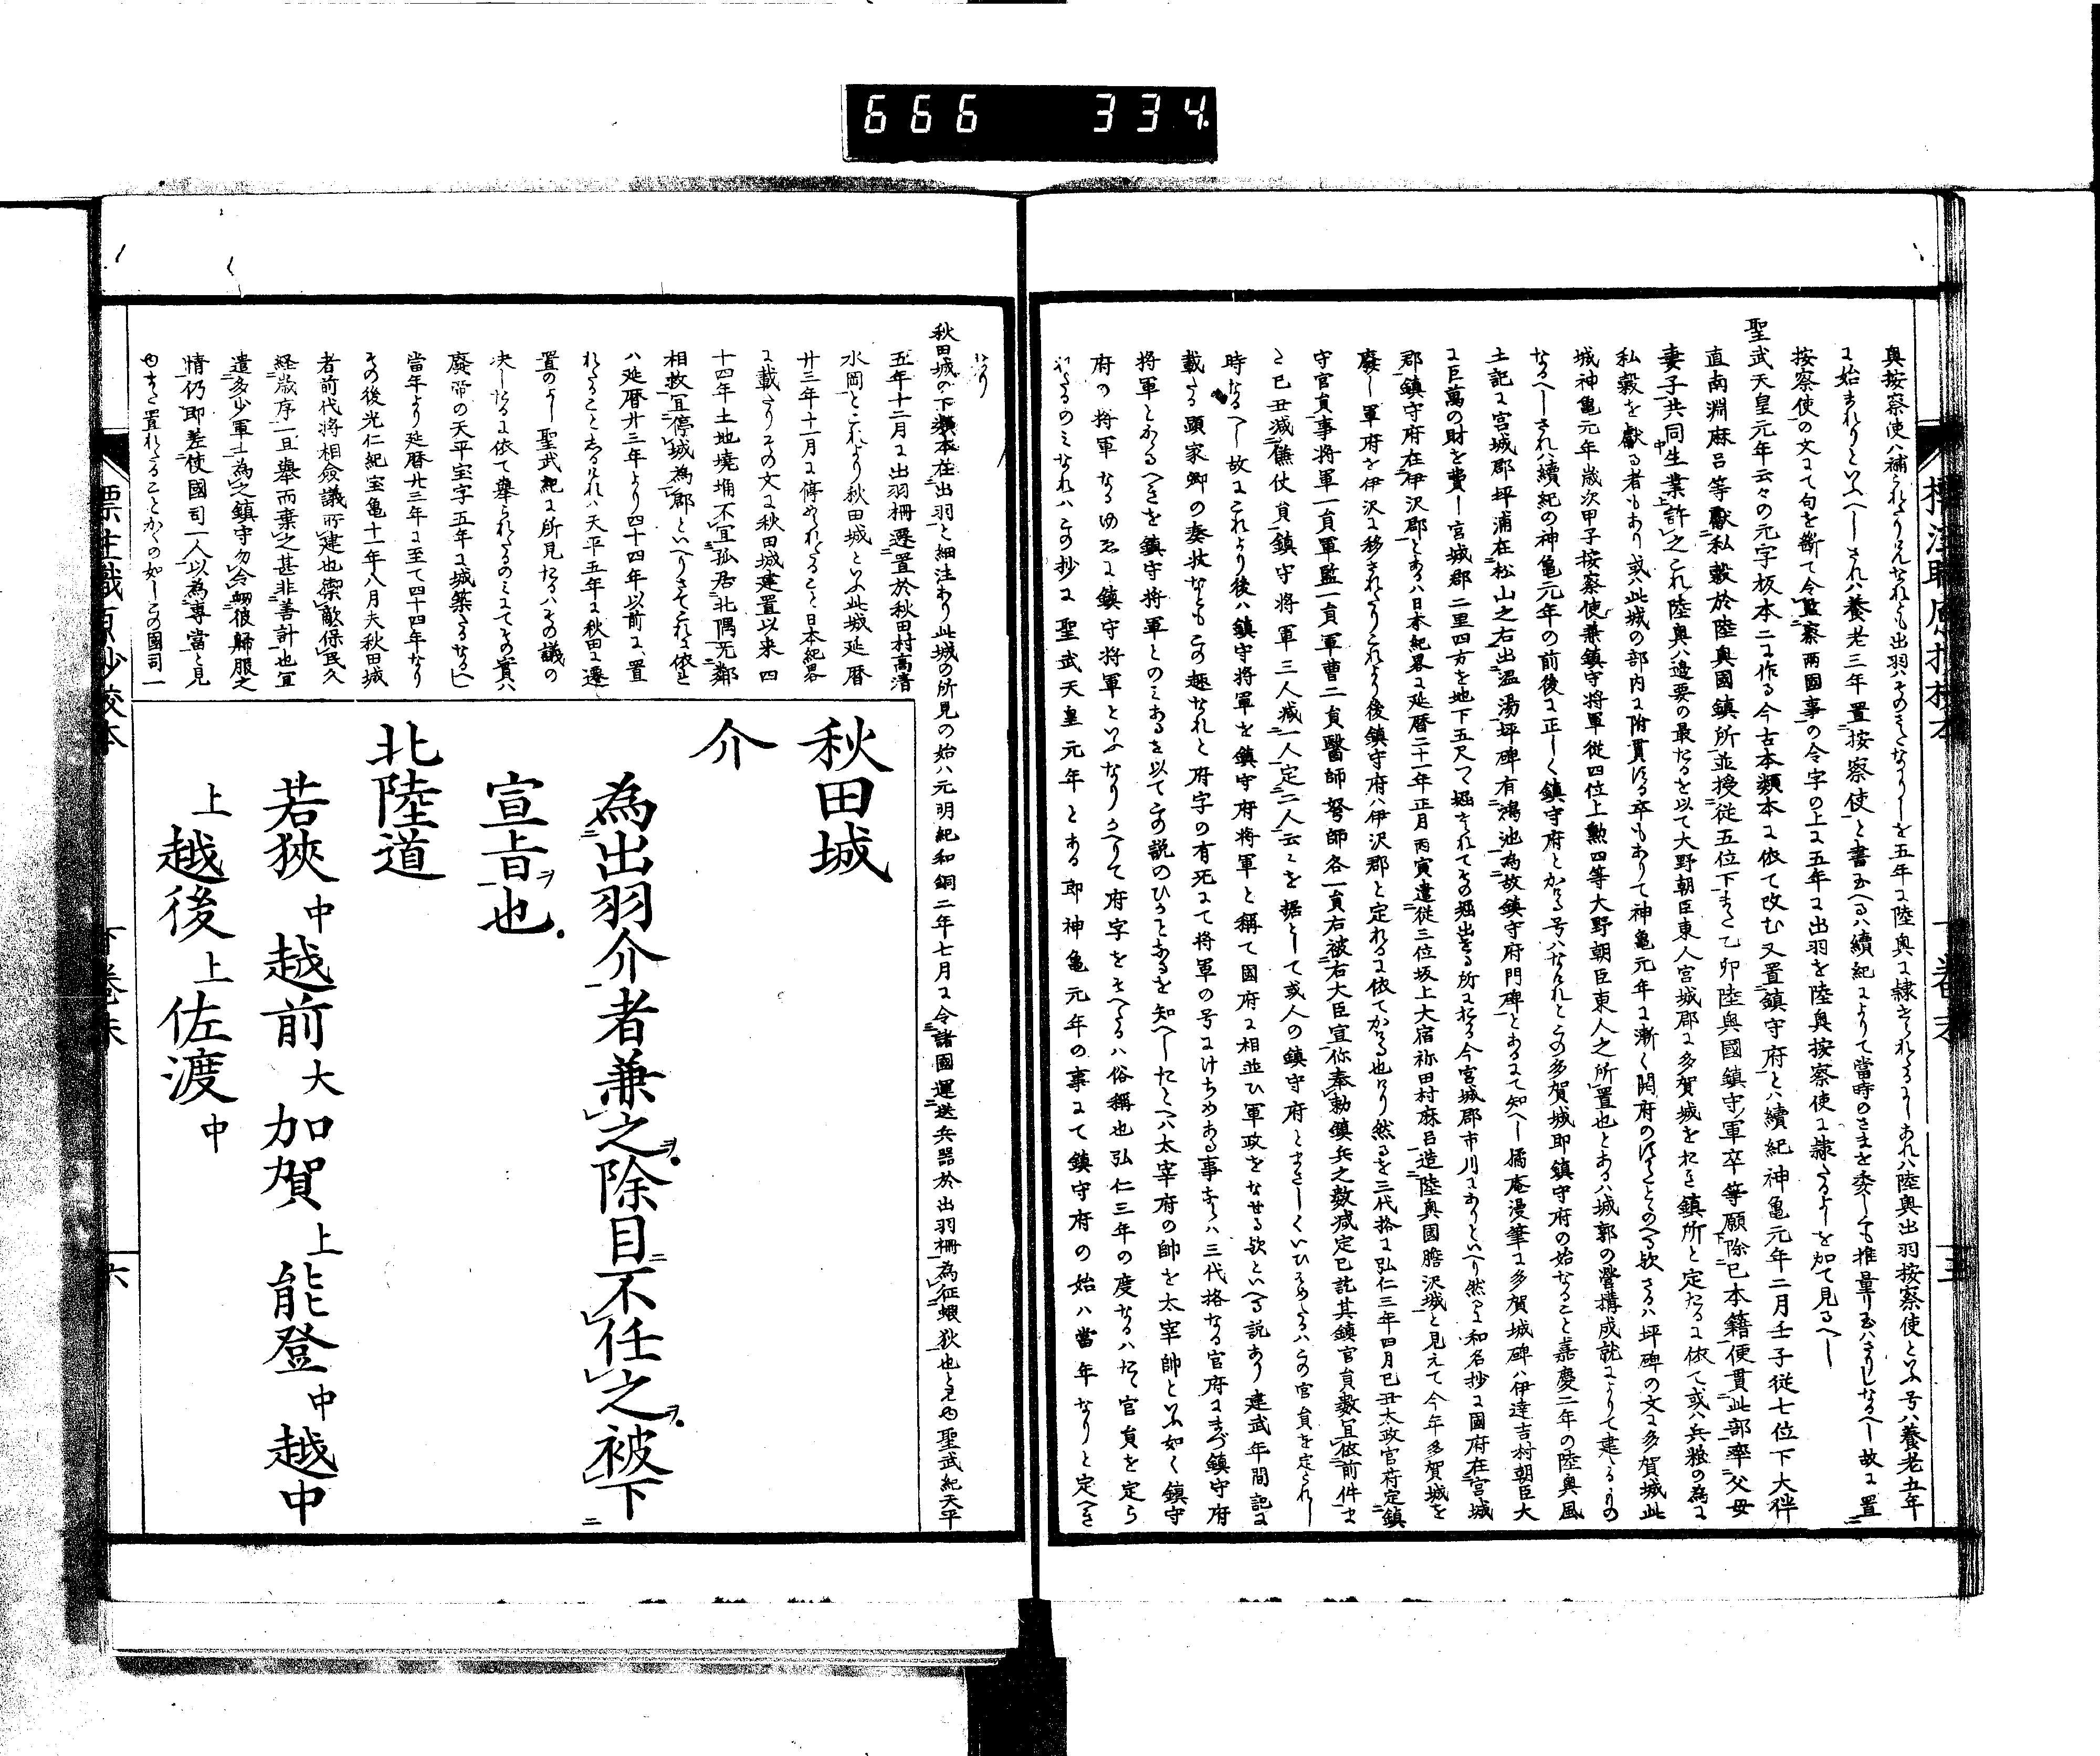 666 334
奥按察使ハ補られたりけんなれとも出羽ハそのさたなかりしを五年に陸奥に隷られたるよしあれハ陸奥出羽按察使といふ号ハ養老五年
に始まれりといふへしされハ養老三年置按察使と書玉へるハ續紀によりて當時のさまを委しくも推量り玉ハさりしなるへし故に置
按察使の文にて句を断て令監察兩國事の令字の上に五年に出羽を陸奥按察使に隷たるよしを加て見るへし
聖武天皇元年云々の元字板本二に作る今古本類本に依て改む又置鎮守府とハ續紀神亀元年二月壬子従七位下大伴
直南淵麻呂等獻私穀於陸奥國鎮所並授従五位下また乙卯陸奥國鎮守軍卒等願除已本籍便貫此部率父母
妻子共同生業許之これ陸奥ハ邉要の最たるを以て大野朝臣東人宮城郡に多賀城をおき鎮所と定たるに依て或ハ兵粮の為に
私穀を獻る者もあり或ハ此城の部内に附貫する卒もありて神亀元年に漸く開府の
城神亀元年歳次甲子按察使兼鎮守将軍従四位上勲四等大野朝臣東人之所置也とあるハ城郭の營構成就
なるへしされハ續紀の神亀元年の前後に正しく鎮守府とかける号ハなけれとこの多賀城即鎮守府の始なること嘉慶二年の陸奥風
土記に宮城郡坪浦在松山之右出温湯坪碑有鴻池為故鎮守府門碑とあるにて知へし橘庵漫筆に多賀城碑ハ伊達吉村朝臣大
に巨萬の財を費し宮城郡二里四方を地下五尺つゝ堀られてその堀出せる所にある今宮城郡市川にありといへり然るに和名抄に國府在宮城
郡鎮守府在伊沢郡とあるハ日本紀畧に延暦二十一年正月丙寅遣従三位坂上大宿祢田村麻呂造陸奥國膽沢城と見えて今年多賀城を
廢し軍府を伊沢に移されたりこれより後鎮守府ハ伊沢郡と定れるに依てかける也けり然るを三代格に弘仁三年四月已丑太政官符定鎮
守官員事将軍一員軍監一員軍曹二員醫師弩師各一員右被右大臣宣你奉勅鎮兵之数減定已訖其鎮官員數宜依前件また
已丑減傔仗員鎮守将軍三人減一人定二人云々を据として或人の鎮守府と
時なるへし故にこれより後ハ鎮守将軍を鎮守府将軍と稱て國府に相並ひ軍政をなせる歟といへる説あり建武年間記に
載たる顕家卿の奏状なともこの趣なれと府字の有无にて将軍の号にけちめある事ならハ三代格なる官府にまづ鎮守府
将軍とあるへきを鎮守将軍とのミあるを以てこの説のひがことなるを知へしたとへハ太宰府の帥を太宰帥といふ如く鎮守
府の将軍なるゆゑに鎮守将軍といふなりかへりて府字をそへたるハ俗稱也弘仁三年の度なるハたゝ官員を定ら
れたるのミなれハこの抄に聖武天皇元年とある即神亀元年の事にて鎮守府の始ハ當年なりと定へき
なり
秋田城の下類本在出羽と細注あり此城の所見の始ハ元明紀和銅二年七月に令諸國運送兵器於出羽柵為征蝦狄也と見ゆ聖武紀天平
五年十二月に出羽柵遷置於秋田村高清
水岡とこれより秋田城といふ此城延暦
廿三年十一月に停められたること日本紀畧
に載たりその文に秋田城建置以来四
十四年土地境埆不宜孤居北隅无鄰
相救宜停城為郡といへりさてこれに依に
ハ延暦廿三年より四十四年以前に、置
れたることと志られハ天平五年に秋田に遷
置のよし聖武紀に所見たるハその議の
決したるに依て舉られたるのミにてその實ハ
廢帝の天平宝字五年に城築たるなるへし
當年より延暦廿三年に至て四十四年なり
その後光仁紀宝亀十一年八月夫秋田城
者前代将相僉議所建也禦敵保民久
経歳序一旦舉而棄之甚非善計也宜
遣多少軍士為之鎮守勿令衂彼歸服之
情仍即差使國司一人以為專當と見
ゆまた置れたることかくの如しこの國司一
秋田城
介
為出羽介者兼之除目不任之被下
宣旨也
北陸道
若狹中 越前大 加賀上 能登中 越中
上 越後上 佐渡中
標注職原抄校本
下巻末
六